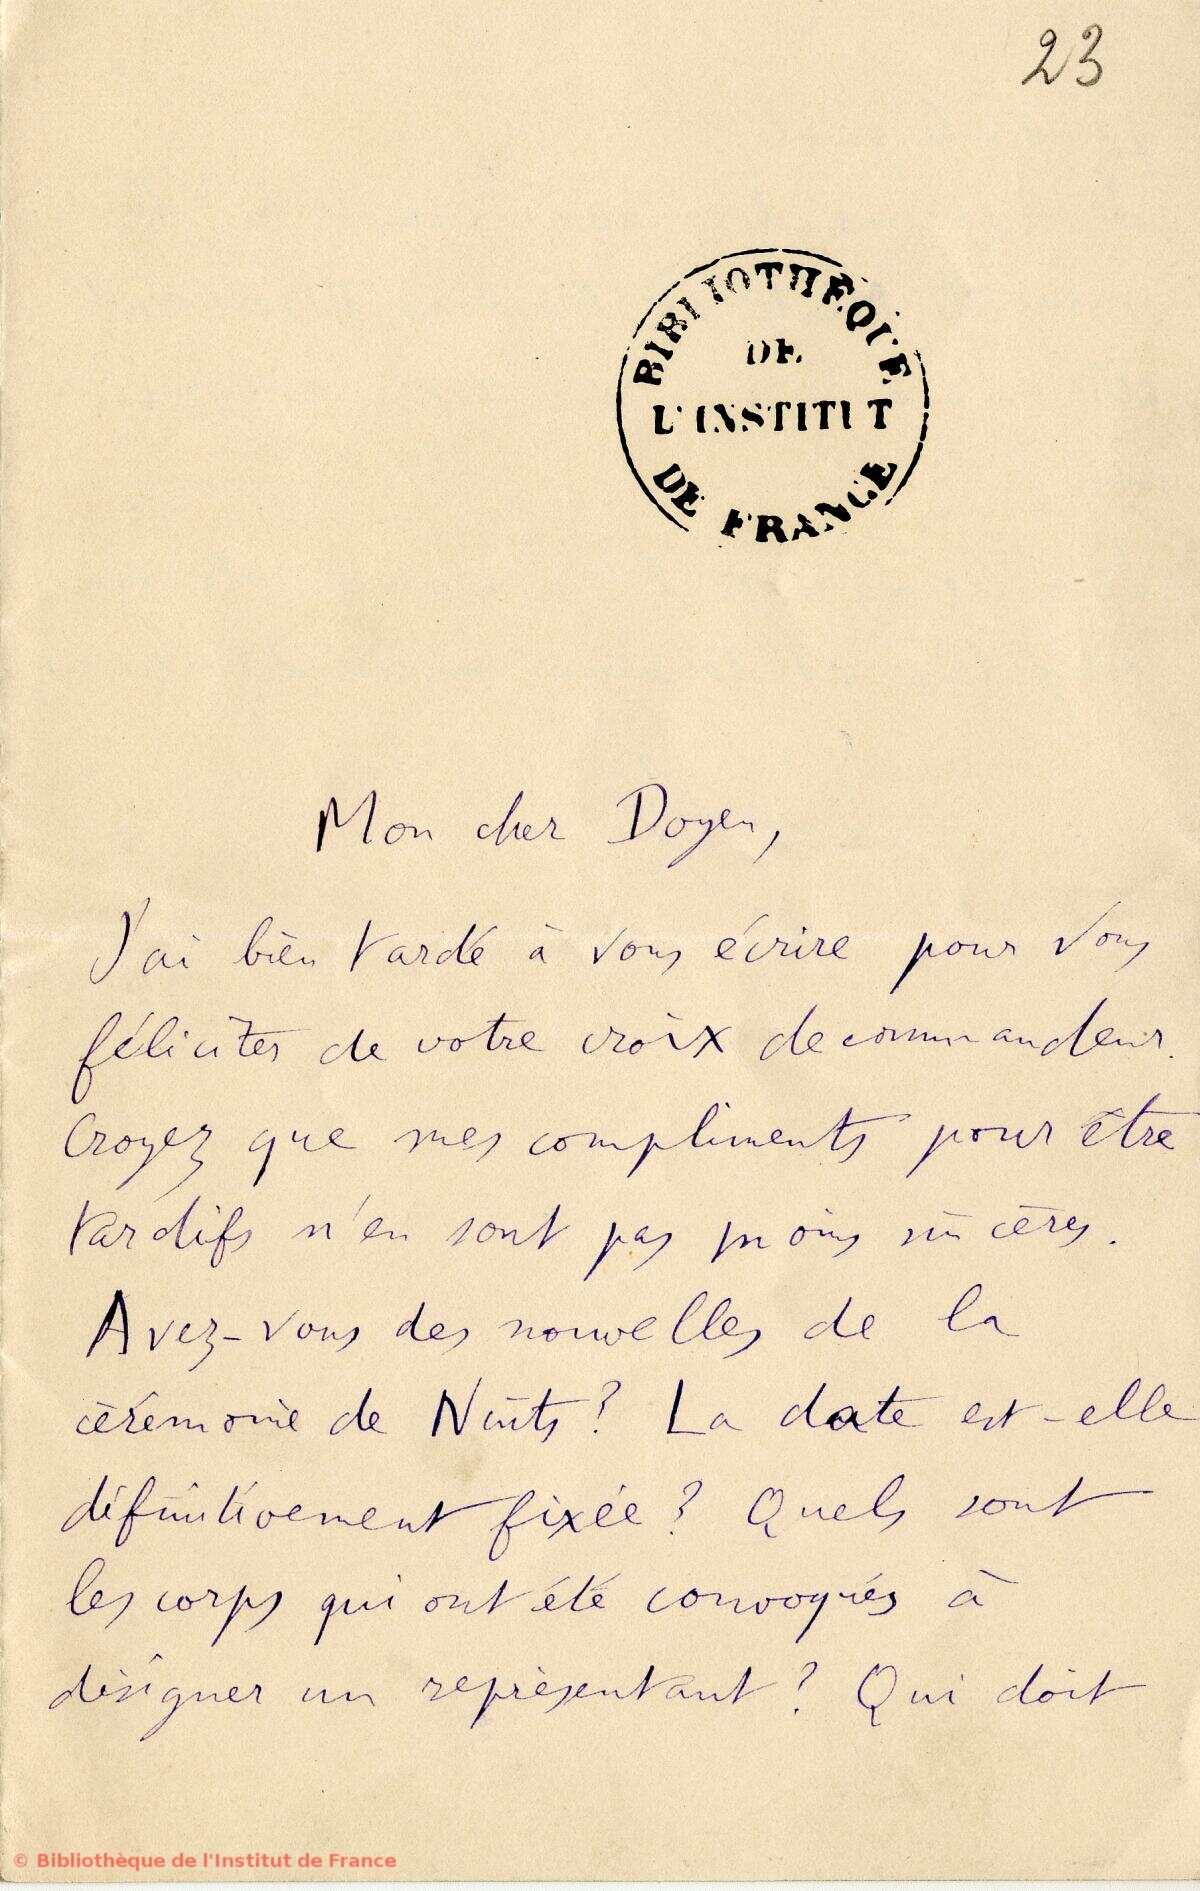 23
BIBLIOTHÈQUE
DE
L'INSTITUT
DE FRANCE
Mon cher Doyen,
J'ai bien tardé à vous écrire pour vous
féliciter de votre croix de commandeur.
Croyez que mes compliments pour être
tardifs n'en sont pas moins sincères.
Avez-vous des nouvelles de la
cérémonie de Nuits? La date est-elle
définitivement fixée? Quels sont
les corps qui ont été convoqués à
désigner un représentant? Qui doit
© Bibliothèque de l'Institut de France